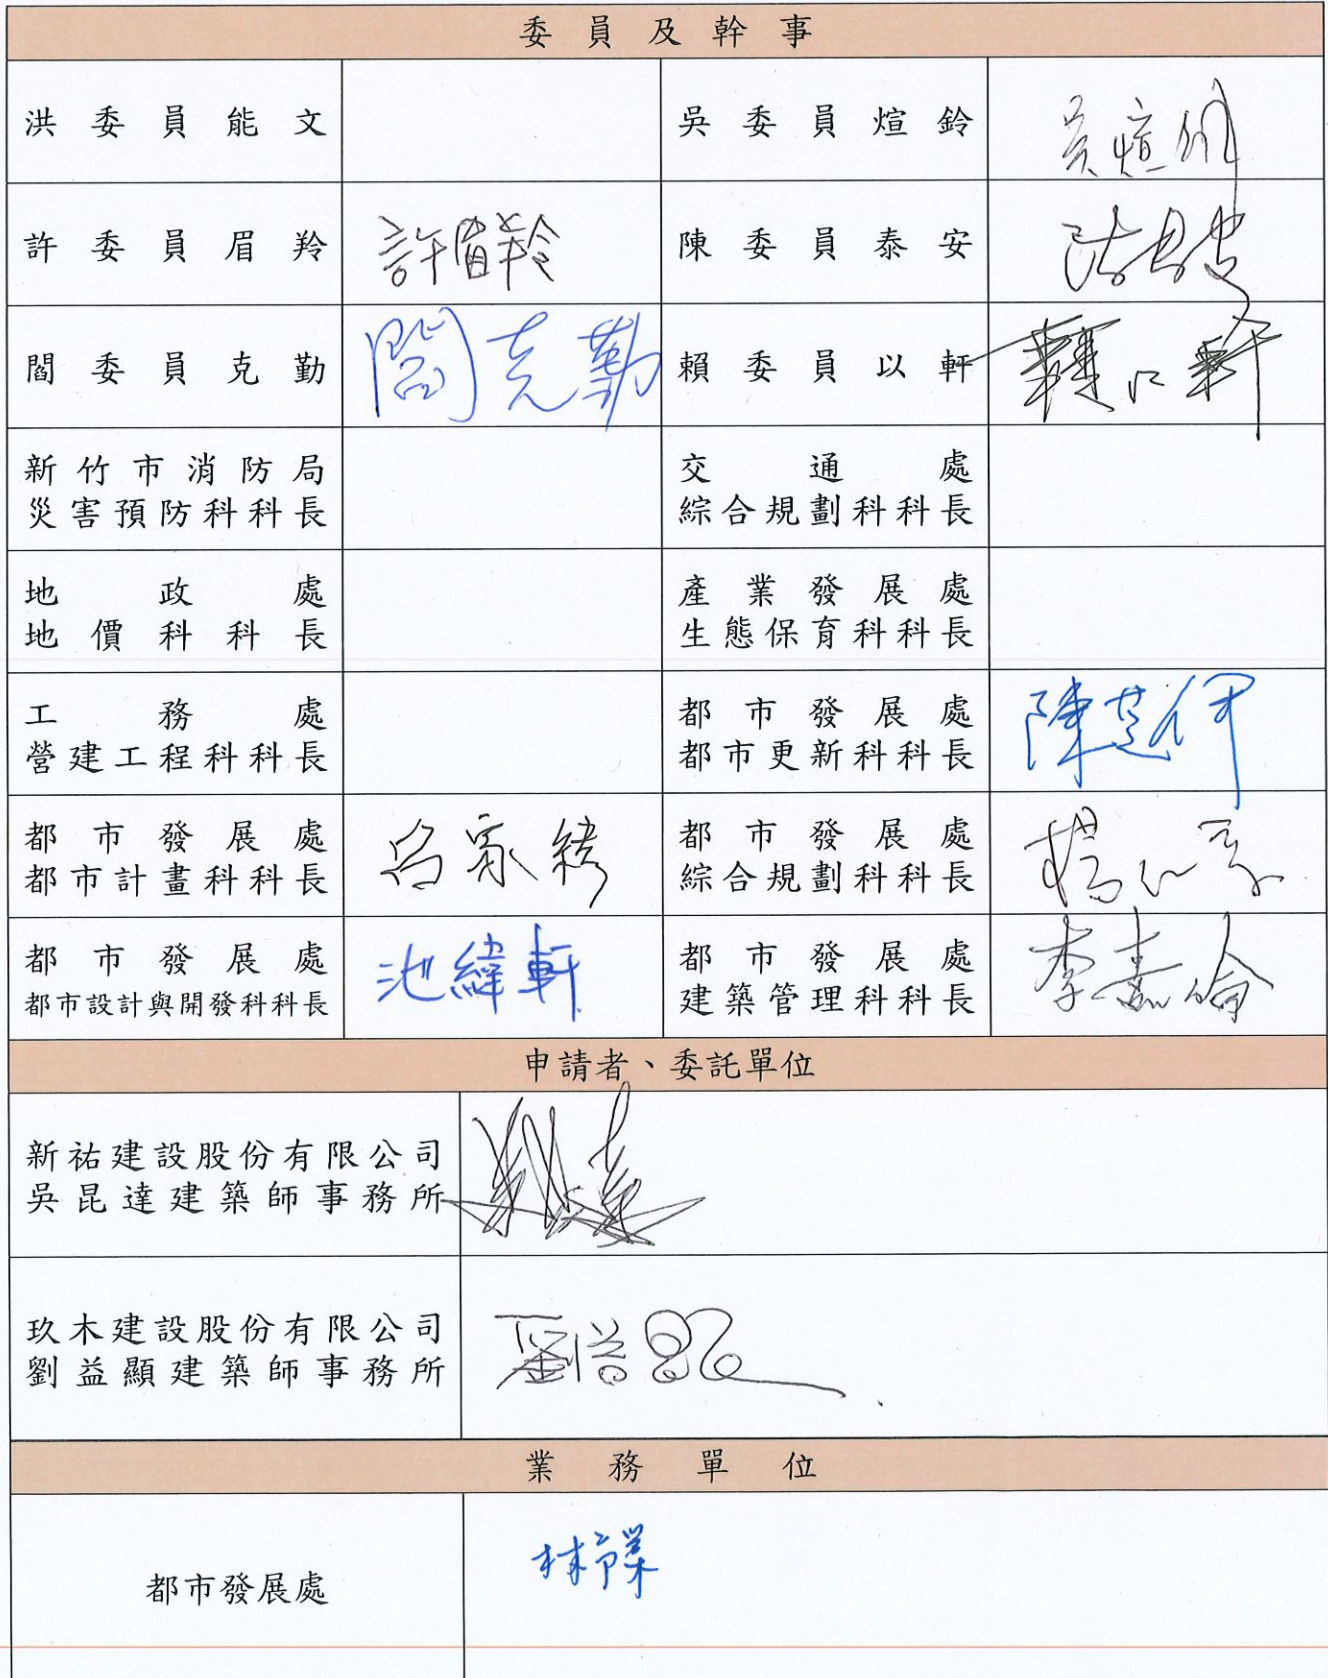 委員及幹事
洪委員能文
吳委員煊鈴
吳煊鈴
許委員眉羚
許眉羚
陳委員泰安
閻委員克勤
閻克勤
賴委員以軒
賴以軒
新竹市消防局
災害預防科科長
交通處
綜合規劃科科長
地政處
地價科科長
產業發展處
生態保育科科長
工務處
營建工程科科長
都市發展處
都市更新科科長
都市發展處
都市計畫科科長
呂家綺
都市發展處
綜合規劃科科長
都市發展處
都市設計與開發科科長
池緯軒
都市發展處
建築管理科科長
申請者、委託單位
新祐建設股份有限公司
吳昆達建築師事務所
玖木建設股份有限公司
劉益顯建築師事務所
劉益顯
業務單位
都市發展處